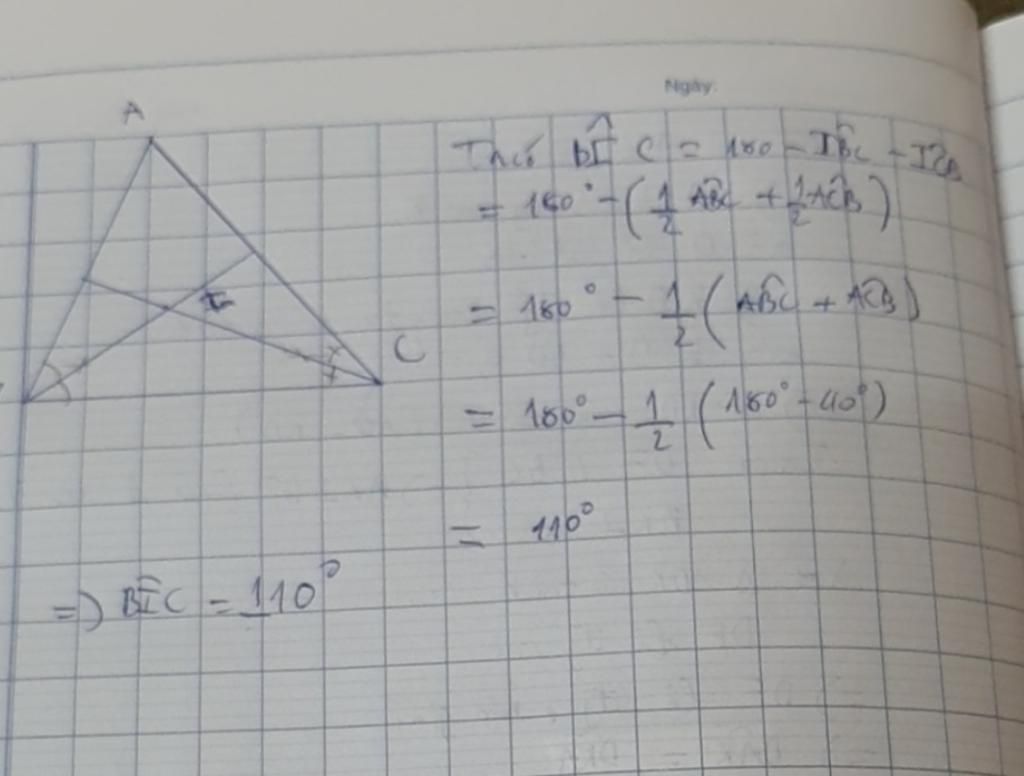 Ngày:
A
Ta có BÎC = 180 - IB̂C - IĈB
= 180° - (1/2 AB̂C + 1/2 AĈB)
= 180° - 1/2 (AB̂C + AĈB)
I
C
= 180° - 1/2 (180° - 40°)
= 110°
=> BÎC = 110°